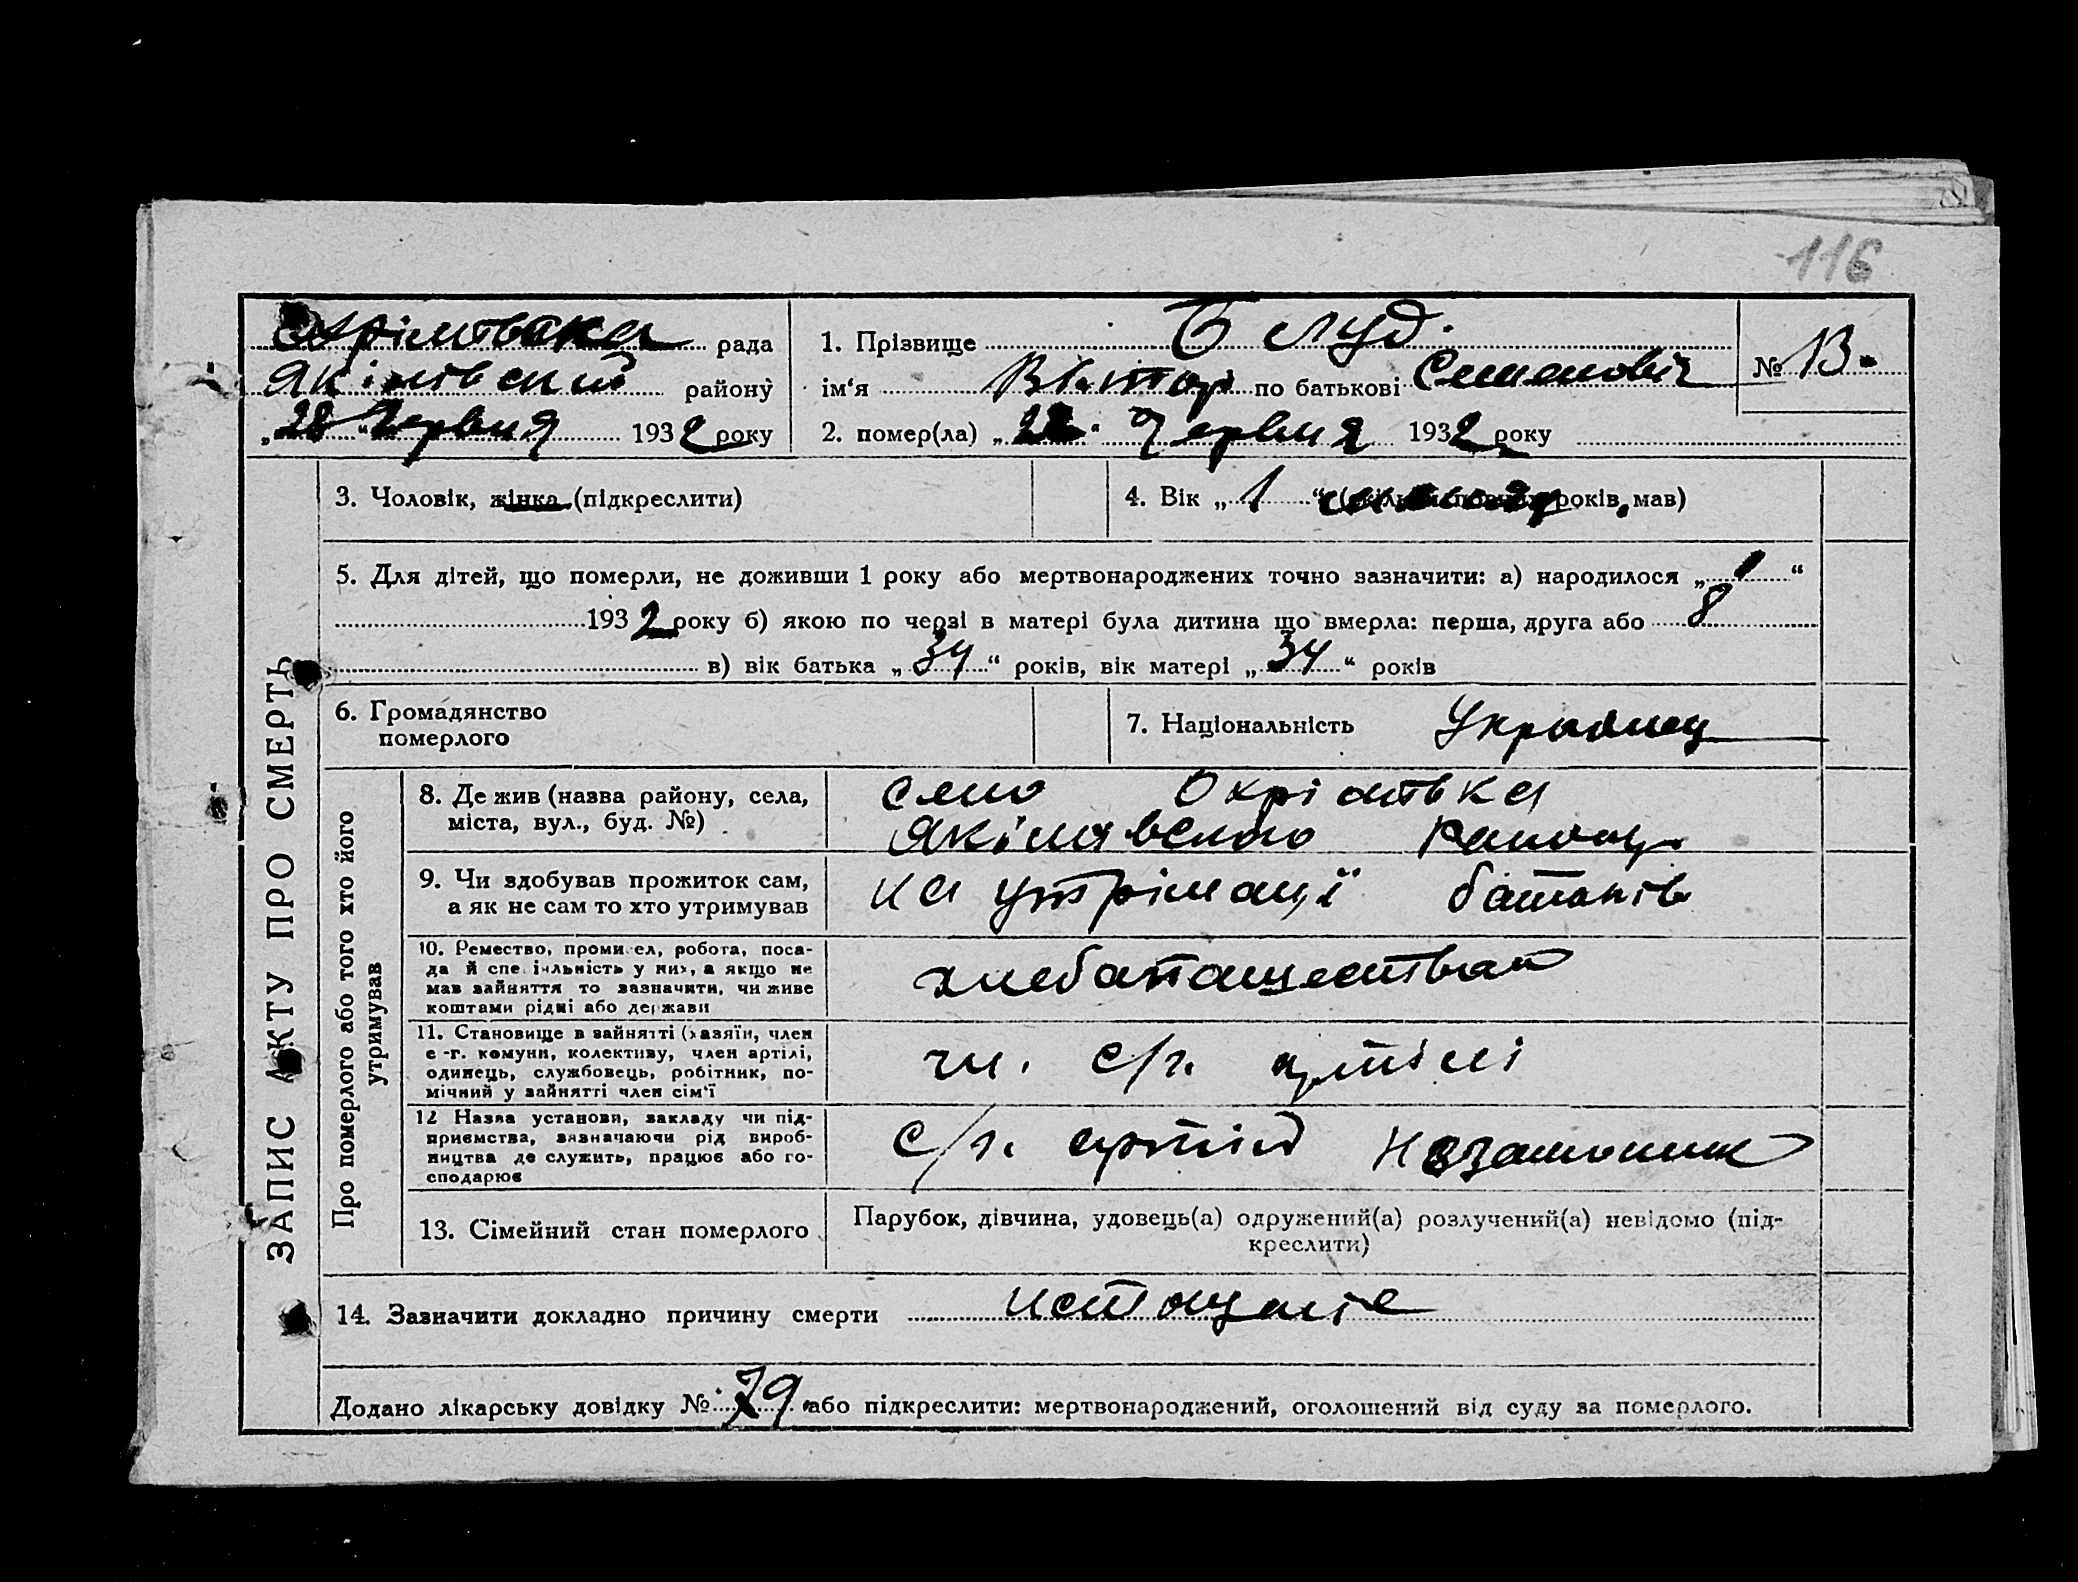 116
Охрімтвска рада
Якімівский району
„28“ Червня 1932 року
1. Прізвище Блуд.
ім‘я Віктор по батькові Семенович
№ 13.
2. помер(ла) „28“ Червня 1932 року
ЗАПИС АКТУ ПРО СМЕРТЬ
3. Чоловік, жінка (підкреслити)
4. Вік „1“ років, мав)
5. Для дітей, що померли, не доживши 1 року або мертвонароджених точно зазначити: а) народилося „1“
1932 року б) якою по черзі в матері була дитина що вмерла: перша, друга або 8
в) вік батька „34“ років, вік матері „34“ років
6. Громадянство
померлого
7. Національність Украінец
Про померлого або того хто його
утримував
8. Де жив (назва району, села,
міста, вул., буд. №)
село Охрімтвка
Якімавского району
9. Чи здобував прожиток сам,
а як не сам то хто утримував
на утрімації батьків
10. Ремество, промисел, робота, поса-
да й спеціяльність у них, а якщо не
мав зайняття то зазначити, чи живе
коштами рідні або держави
хлебапашество
11. Становище в зайнятті (хазяїн, член
с.-г. комуни, колективу, член артілі,
одинець, службовець, робітник, по-
мічний у зайнятті член сім'ї
чл. с/г. артілі
12 Назва установи, закладу чи під-
приємства, зазначаючи рід вироб-
ництва де служить, працює або го-
сподарює
с/г. артіль Незаможник
13. Сімейний стан померлого
Парубок, дівчина, удовець(а) одружений(а) розлучений(а) невідомо (під-
креслити)
14. Зазначити докладно причину смерти истощаніе
Додано лікарську довідку № 79 або підкреслити: мертвонароджений, оголошений від суду за померлого.